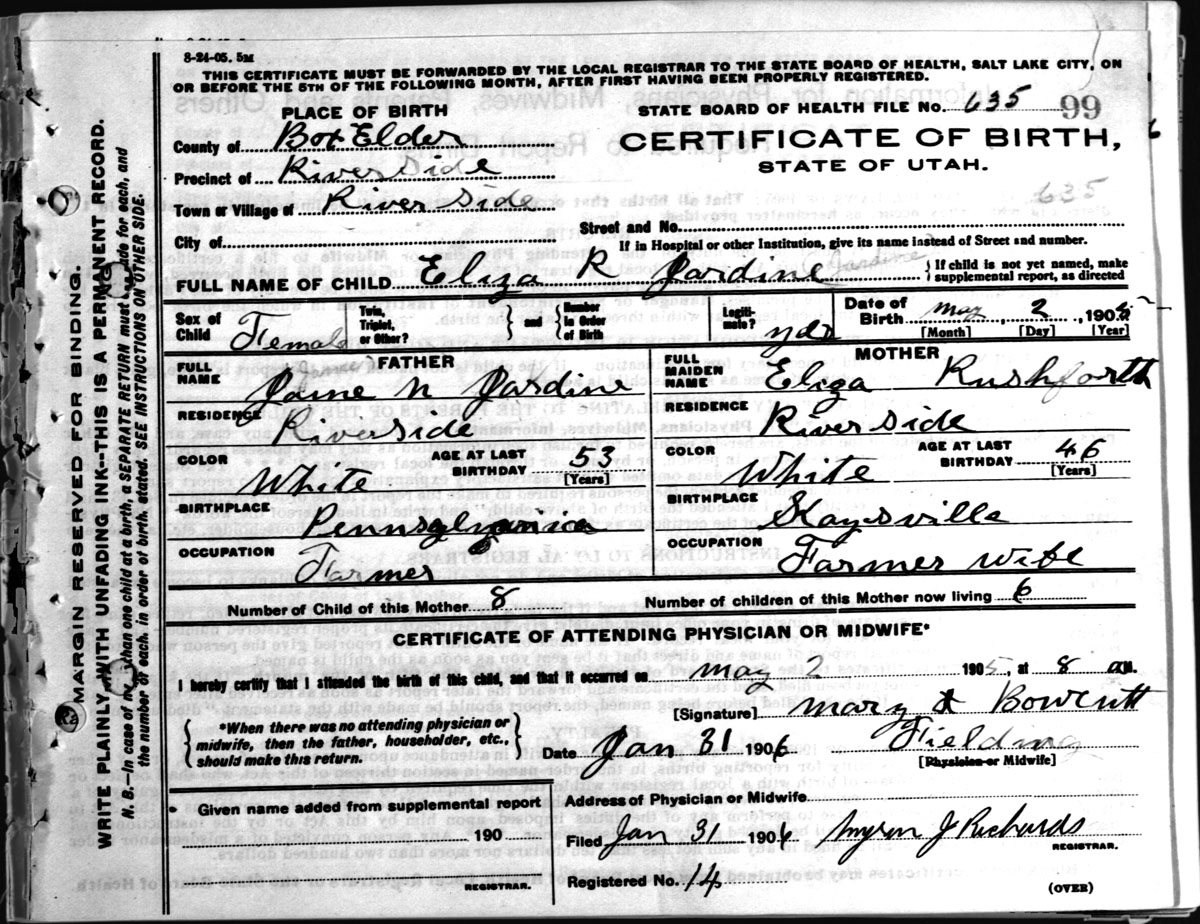 8-24-05. 5M
THIS CERTIFICATE MUST BE FORWARDED BY THE LOCAL REGISTRAR TO THE STATE BOARD OF HEALTH, SALT LAKE CITY, ON
OR BEFORE THE 5TH OF THE FOLLOWING MONTH, AFTER FIRST HAVING BEEN PROPERLY REGISTERED.
PLACE OF BIRTH
STATE BOARD OF HEALTH FILE NO. 635 99
County of Box Elder
CERTIFICATE OF BIRTH,
STATE OF UTAH.
Precinct of River side
635
Town or Village of River side
Street and No.
City of
If in Hospital or other Institution, give its name instead of Street and number.
FULL NAME OF CHILD Eliza R Jardine
{ If child is not yet named, make supplemental report, as directed
Sex of Child Female
Twin, Triplet, or Other? } and { Number in Order of Birth
Legiti-mate? yds
Date of Birth May 2, 1905
[Month] [Day] [Year]
FATHER
MOTHER
FULL NAME Jame N Jardine
FULL MAIDEN NAME Eliza Rushforth
RESIDENCE Riverside
RESIDENCE Riverside
COLOR White
AGE AT LAST BIRTHDAY 53
[Years]
COLOR White
AGE AT LAST BIRTHDAY 46
[Years]
BIRTHPLACE Pennsylvania
BIRTHPLACE Kaysville
OCCUPATION Farmer
OCCUPATION Farmer wife
Number of Child of this Mother 8
Number of children of this Mother now living 6
CERTIFICATE OF ATTENDING PHYSICIAN OR MIDWIFE*
I hereby certify that I attended the birth of this child, and that it occurred on May 2 1905, at 8 am.
[Signature] Mary A Bowcutt
{ *When there was no attending physician or midwife, then the father, householder, etc., should make this return. }
Date Jan 31 1906 Fielding
[Physician or Midwife]
Given name added from supplemental report
190
REGISTRAR.
Address of Physician or Midwife
Filed Jan 31 1906 Myron J Richards
REGISTRAR.
Registered No. 14
(OVER)
MARGIN RESERVED FOR BINDING.
WRITE PLAINLY WITH UNFADING INK--THIS IS A PERMANENT RECORD.
N. B.--In case of more than one child at a birth, a SEPARATE RETURN must be made for each, and
the number of each, in order of birth, stated. SEE INSTRUCTIONS ON OTHER SIDE.